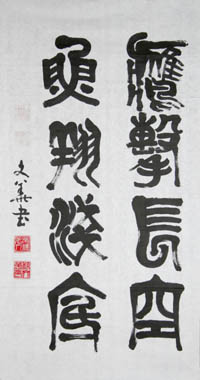 鷹擊長空
魚翔淺底
文華書